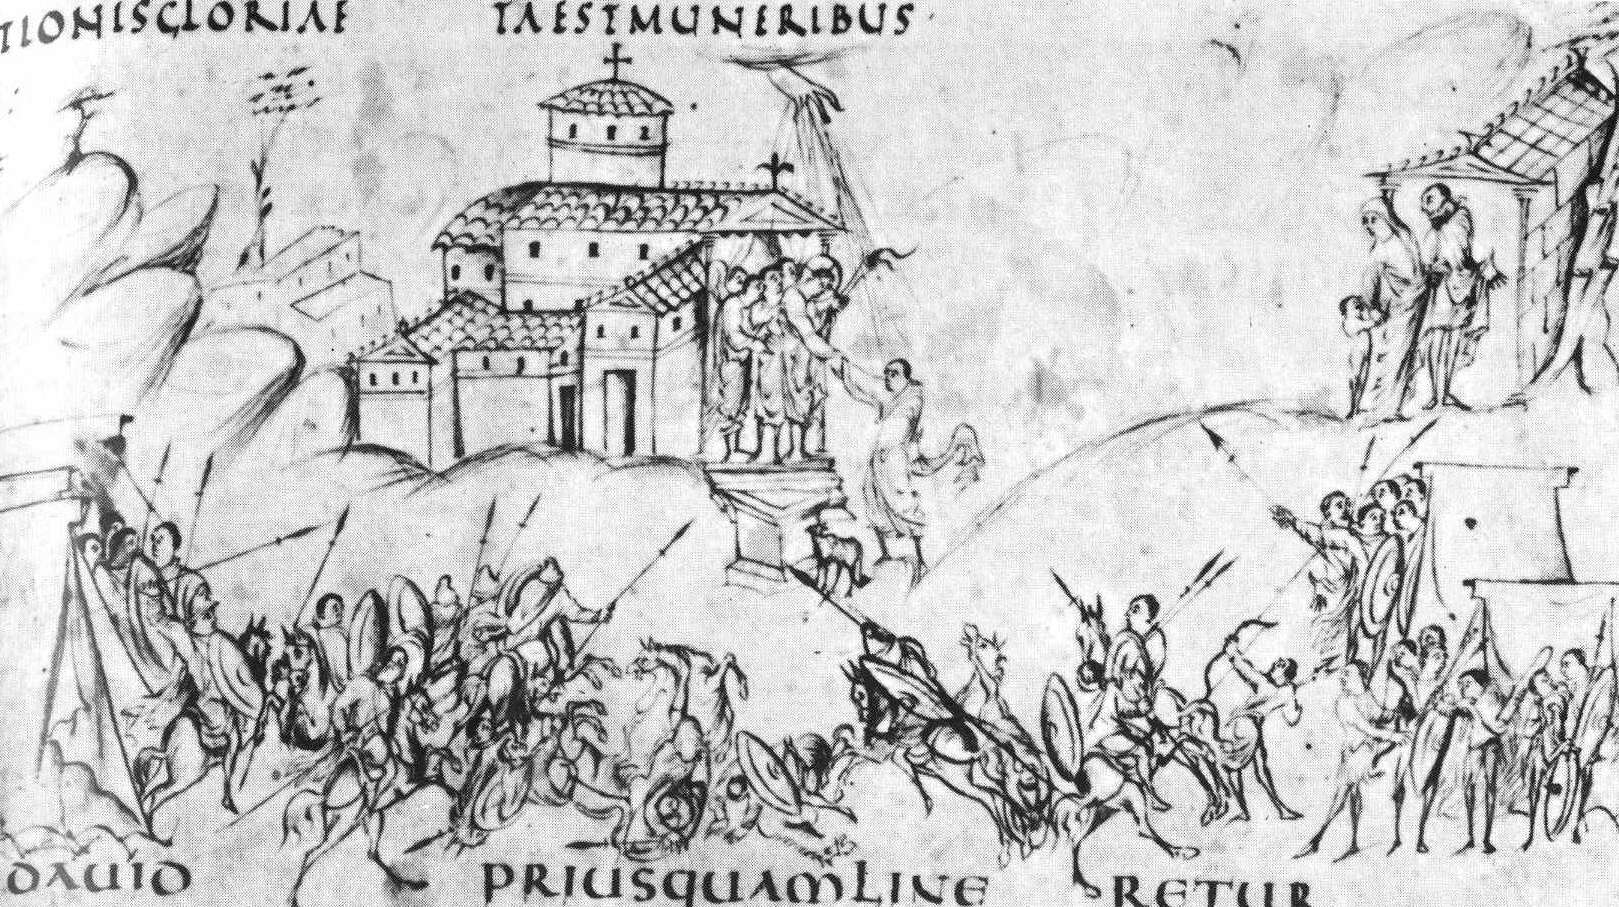 TIONISGLORIAE TAESTMUNERIBUS
DAUID PRIUSQUAMLINE RETUR